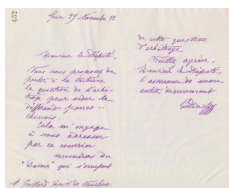 Monsieur le Député,
Vous vous proposez de
porter à la tribune
la question de l'arbi-
trage pour vider le
différend franco-
chinois.
Cela m'engage
à vous adresser
par ce courrier
numéros du
"Devoir" qui s'occupent
de cette question
d'arbitrage.
Veuillez agréer,
Monsieur le Député,
l'assurance de mon
entier dévouement